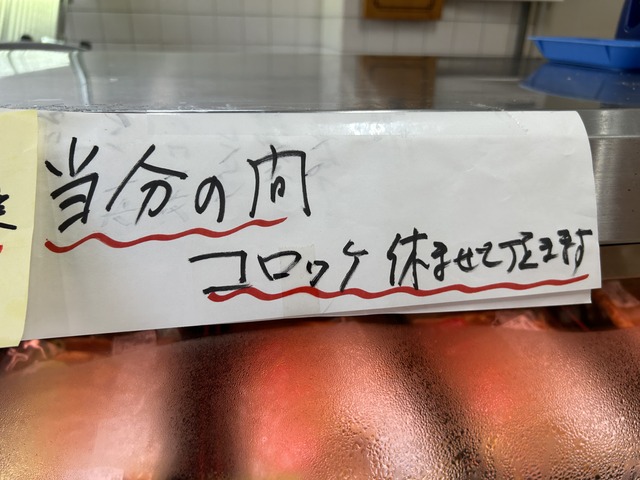 当分の間
コロッケ休ませて頂きます